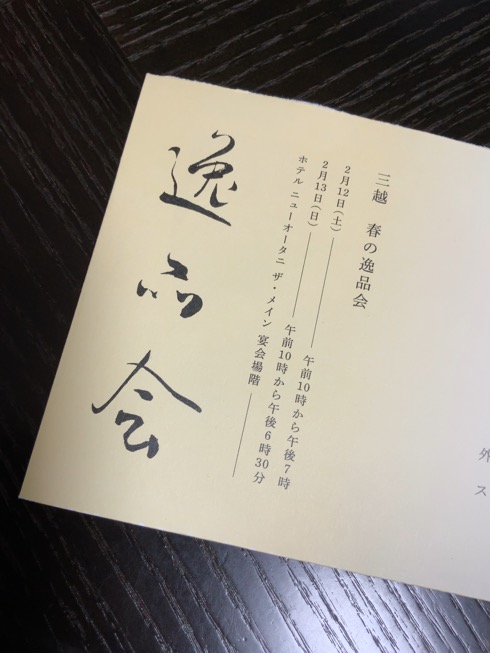 三越 春の逸品会
2月12日(土)――午前10時から午後7時
2月13日(日)――午前10時から午後6時30分
ホテル ニューオータニ ザ・メイン 宴会場階――
逸品会
外
ス